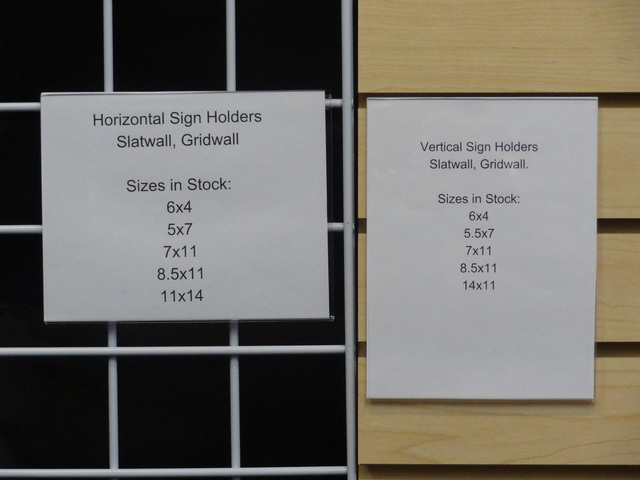 Horizontal Sign Holders
Slatwall, Gridwall
Sizes in Stock:
6x4
5x7
7x11
8.5x11
11x14
Vertical Sign Holders
Slatwall, Gridwall.
Sizes in Stock:
6x4
5.5x7
7x11
8.5x11
14x11